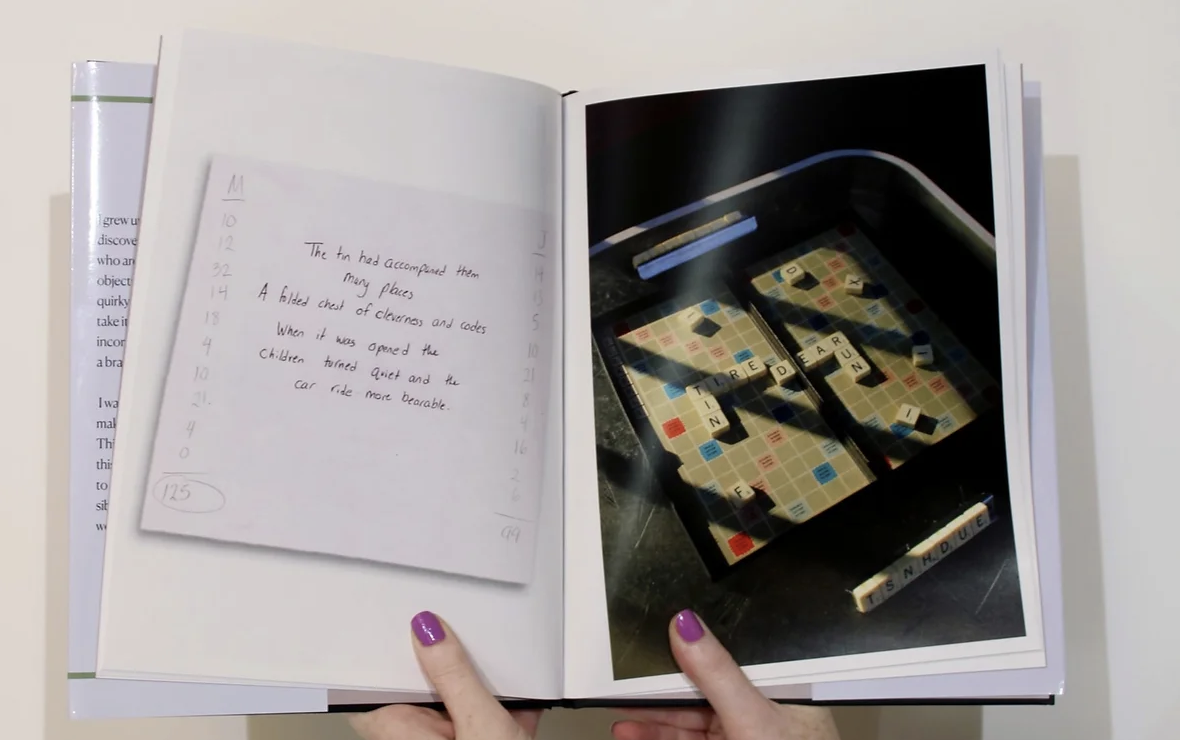 I grew u
discove
who are
object
quirky
take it
incor
a bra
I wa
mak
Thi
this
to
sib
we
M
10
12
32
14
18
4
10
21
4
0
125
The tin had accompanied them
many places
A folded chest of cleverness and codes
When it was opened the
children turned quiet and the
car ride more bearable.
J
14
13
5
10
21
8
4
16
2
6
99
O
X
I
TIRED
EAR
UN
I
IN
I
F
TSNHDUE